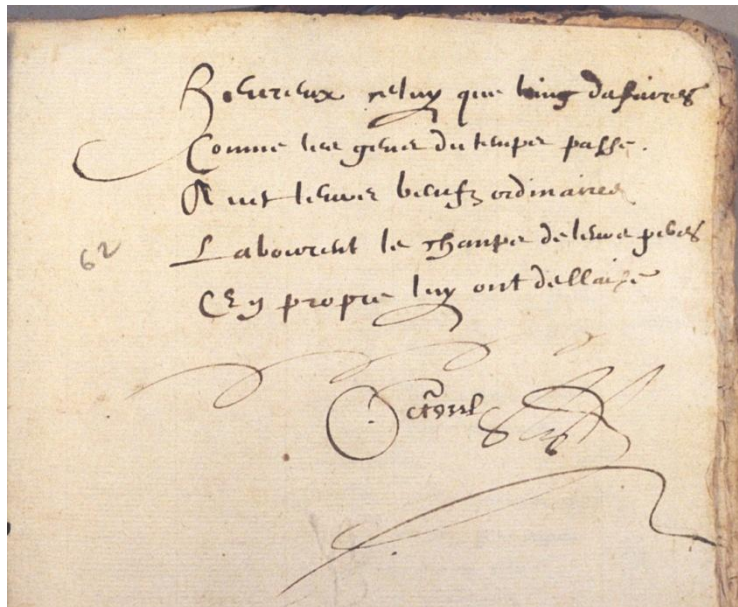 Heureux celuy que loing dafaires
Comme les gens du temps passe.
A vec leurs beufz ordinaires
Labourent le champs de leurs peres
En propre luy ont dellaise
62